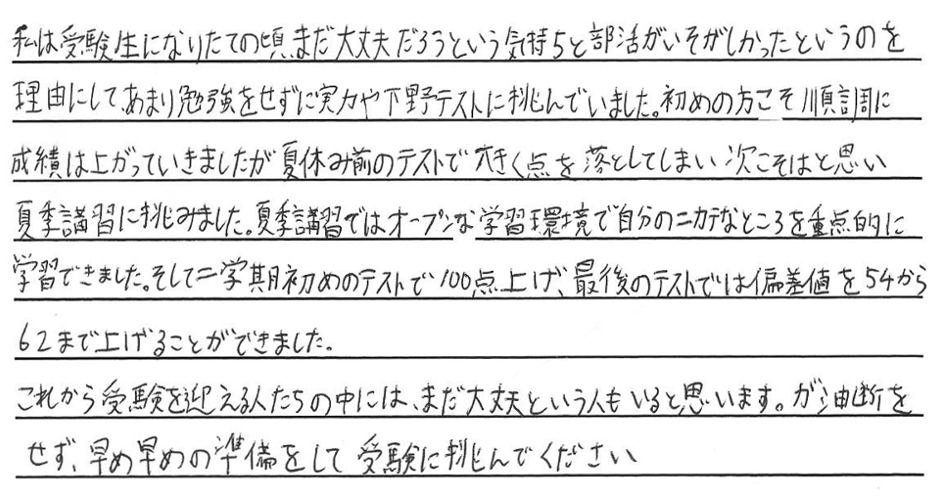 私は受験生になりたての頃、まだ大丈夫だろうという気持ちと部活がいそがしかったというのを
理由にして、あまり勉強をせずに実力や下野テストに挑んでいました。初めの方こそ順調に
成績は上がっていきましたが夏休み前のテストで大きく点を落としてしまい次こそはと思い
夏季講習に挑みました。夏季講習ではオープンな学習環境で自分のニガテなところを重点的に
学習できました。そして二学期初めのテストで100点上げ、最後のテストでは偏差値を54から
62まで上げることができました。
これから受験を迎える人たちの中には、まだ大丈夫という人もいると思います。が油断を
せず、早め早めの準備をして受験に挑んでください